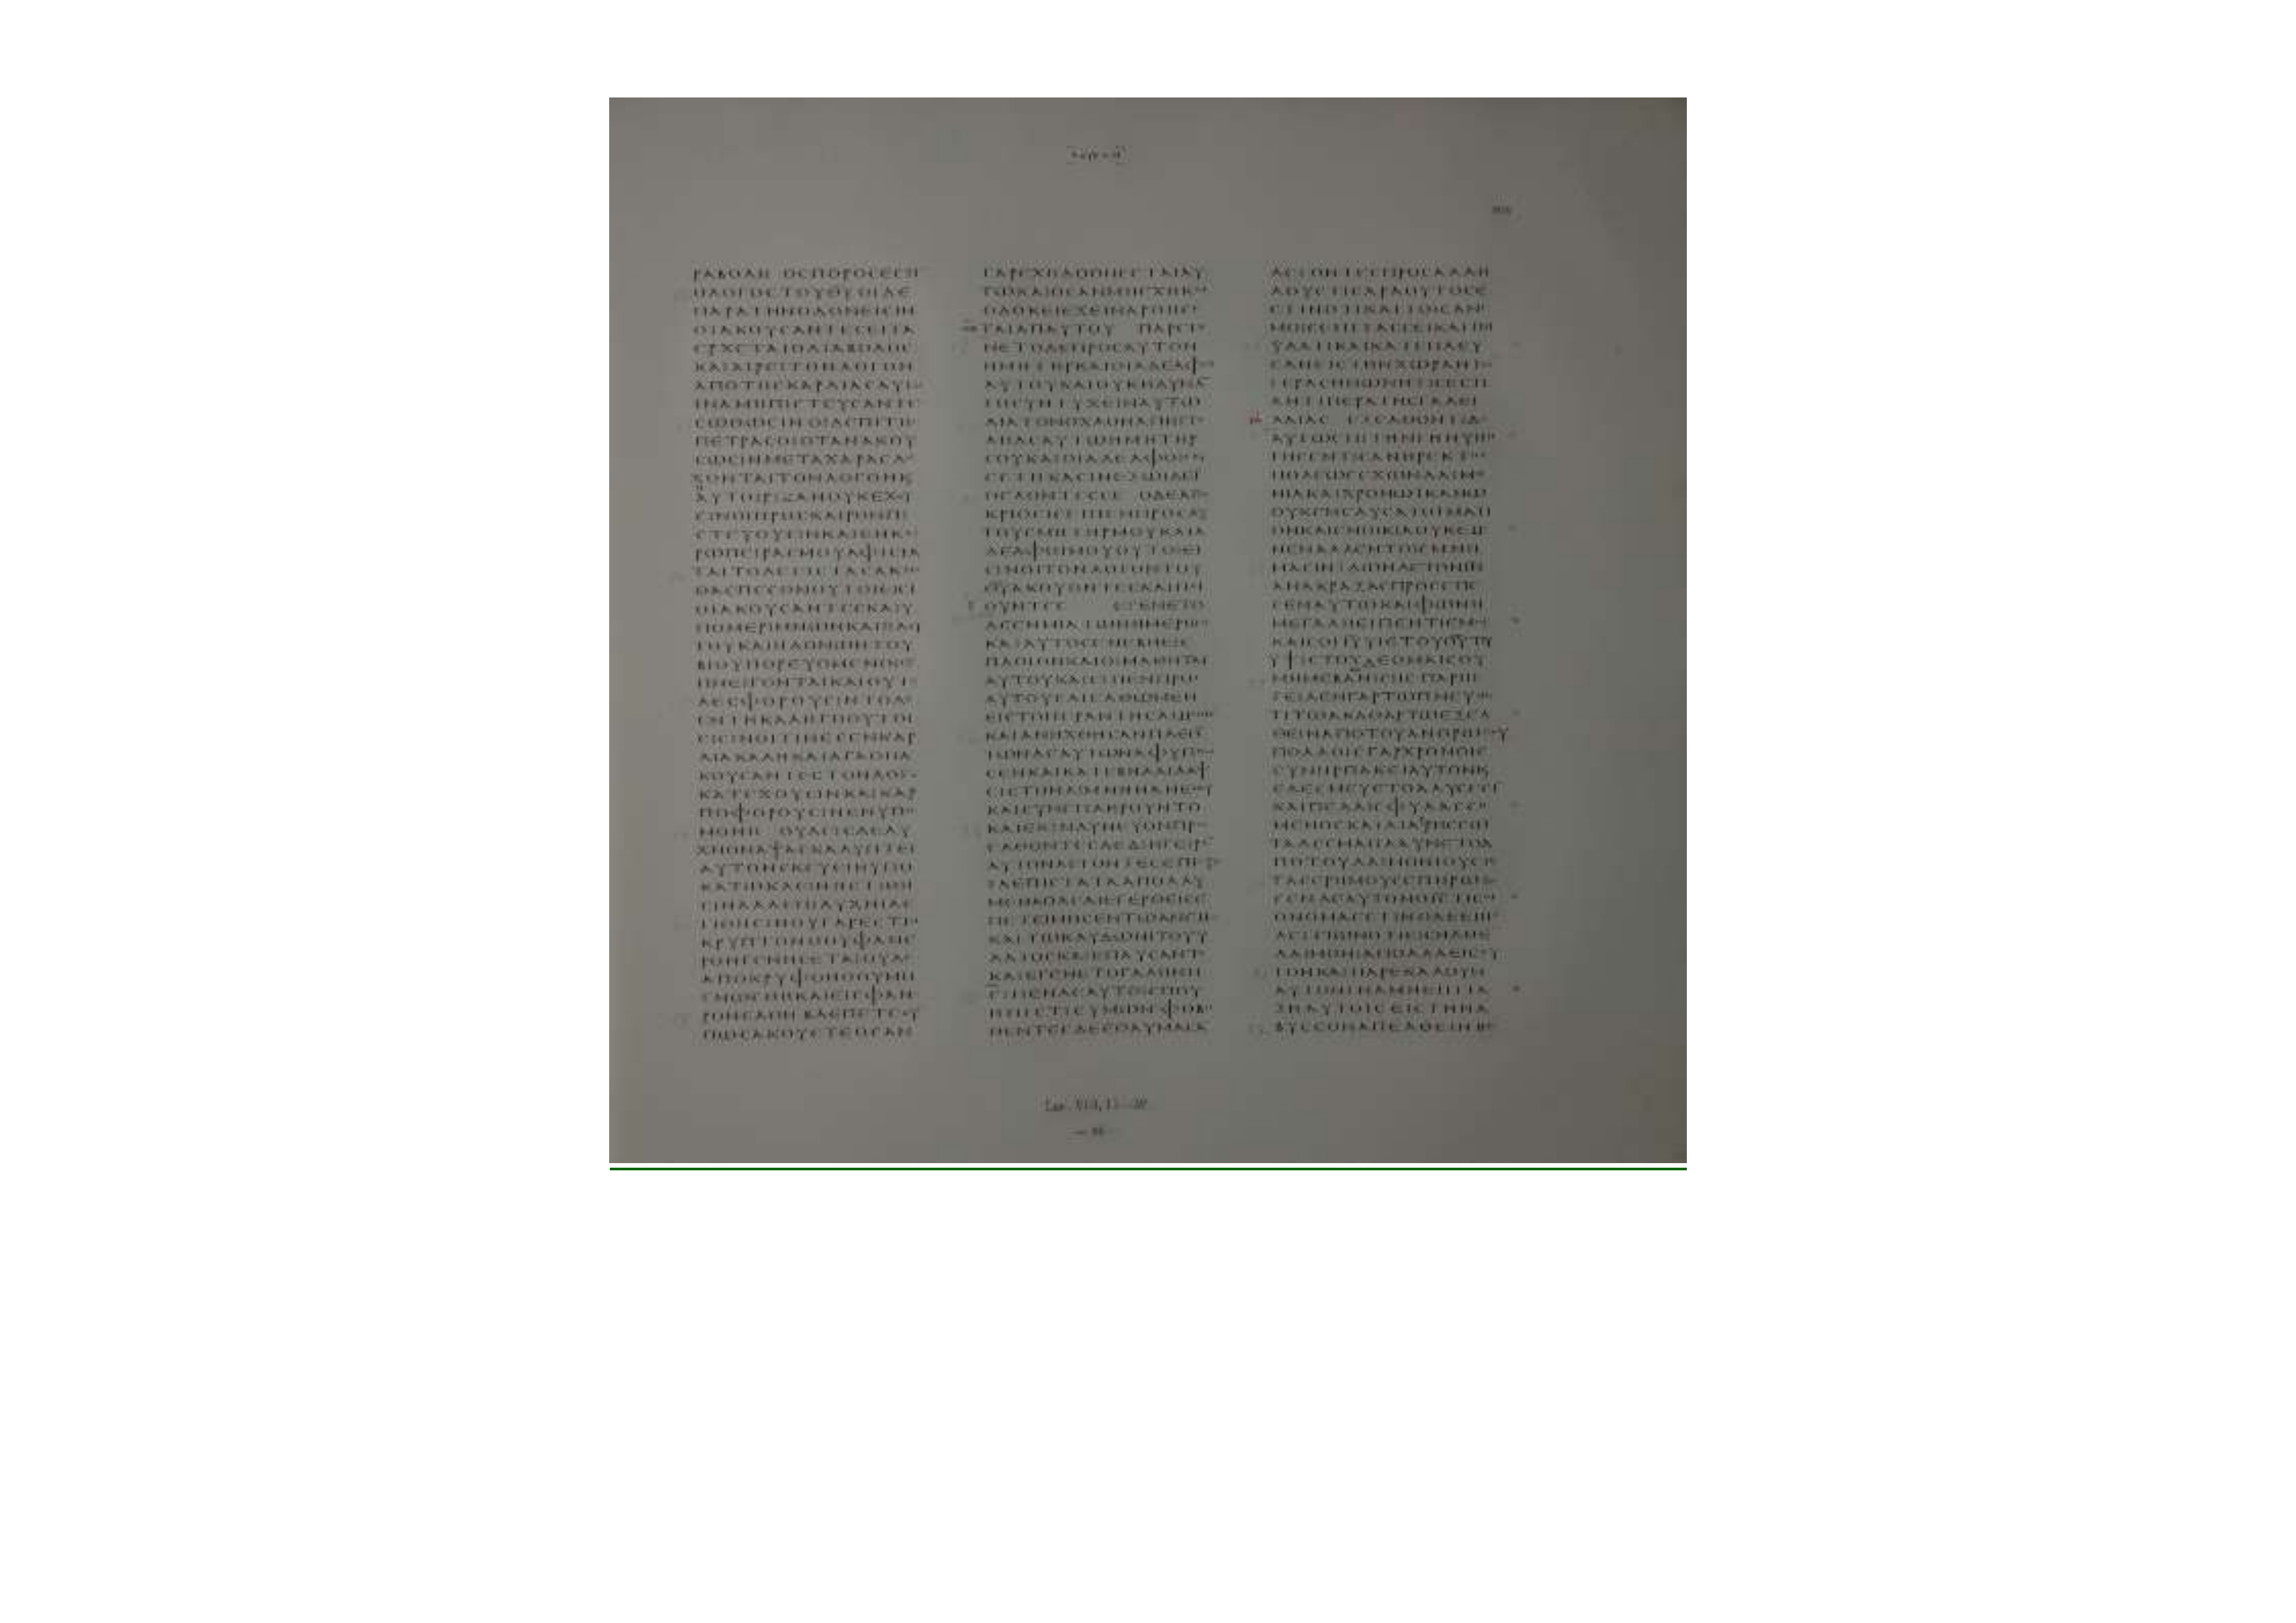 ΡΑΒΟΛΗ ΟϹΠΟΡΟϹΕϹΤΙ
ΟΛΟΓΟϹΤΟΥΘΥ ΟΙΔΕ
ΠΑΡΑΤΗΝΟΔΟΝΕΙϹΙΝ
ΟΙΑΚΟΥϹΑΝΤΕϹΕΙΤΑ
ΕΡΧΕΤΑΙΟΔΙΑΒΟΛΟϹ
ΚΑΙΑΙΡΕΙΤΟΝΛΟΓΟΝ
ΑΠΟΤΗϹΚΑΡΔΙΑϹΑΥΤΩ
ΙΝΑΜΗΠΙϹΤΕΥϹΑΝΤΕϹ
ϹΩΘΩϹΙΝ ΟΙΔΕΕΠΙΤΗϹ
ΠΕΤΡΑϹΟΙΟΤΑΝΑΚΟΥ
ϹΩϹΙΝΜΕΤΑΧΑΡΑϹΔΕ
ΧΟΝΤΑΙΤΟΝΛΟΓΟΝΚ
ΑΥΤΟΙΡΙΖΑΝΟΥΚΕΧΟΥ
ϹΙΝΟΙΠΡΟϹΚΑΙΡΟΝΠΙ
ϹΤΕΥΟΥϹΙΝΚΑΙΕΝΚΑΙ
ΡΩΠΕΙΡΑϹΜΟΥΑΦΙϹΤΑ
ΤΑΙΤΟΔΕΕΙϹΤΑϹΑΚΑΝ
ΘΑϹΠΕϹΟΝΟΥΤΟΙΕΙϹΙ
ΟΙΑΚΟΥϹΑΝΤΕϹΚΑΙΥ
ΠΟΜΕΡΙΜΝΩΝΚΑΙΠΛΟΥ
ΤΟΥΚΑΙΗΔΟΝΩΝΤΟΥ
ΒΙΟΥΠΟΡΕΥΟΜΕΝΟΙϹΥ
ΠΝΕΙΓΟΝΤΑΙΚΑΙΟΥΤΕ
ΛΕϹΦΟΡΟΥϹΙΝ ΤΟΔΕ
ΕΝΤΗΚΑΛΗΓΗΟΥΤΟΙ
ΕΙϹΙΝΟΙΤΙΝΕϹΕΝΚΑΡ
ΔΙΑΚΑΛΗΚΑΙΑΓΑΘΗΑ
ΚΟΥϹΑΝΤΕϹΤΟΝΛΟΓΟ
ΚΑΤΕΧΟΥϹΙΝΚΑΙΚΑΡ
ΠΟΦΟΡΟΥϹΙΝΕΝΥΠΟ
ΜΟΝΗ ΟΥΔΕΙϹΔΕΛΥ
ΧΝΟΝΑΨΑϹΚΑΛΥΠΤΕΙ
ΑΥΤΟΝϹΚΕΥΕΙΗΥΠΟ
ΚΑΤΩΚΛΕΙΝΗϹΤΙΘΗ
ϹΙΝΑΛΛΕΠΙΛΥΧΝΙΑϹ
ΤΙΘΗϹΙΝΟΥΓΑΡΕϹΤΙΝ
ΚΡΥΠΤΟΝΟΟΥΦΑΝΕ
ΡΟΝΓΕΝΗϹΕΤΑΙΟΥΔΕ
ΑΠΟΚΡΥΦΟΝΟΟΥΜΗ
ΓΝΩϹΘΗΚΑΙΕΙϹΦΑΝΕ
ΡΟΝΕΛΘΗ ΒΛΕΠΕΤΕΟΥ
ΠΩϹΑΚΟΥΕΤΕΟϹΑΝ
ΓΑΡΕΧΗΔΟΘΗϹΕΤΑΙΑΥ
ΤΩΚΑΙΟϹΑΝΜΗΕΧΗΚΑΙ
ΟΔΟΚΕΙΕΧΕΙΝΑΡΘΗϹΕ
ΤΑΙΑΠΑΥΤΟΥ ΠΑΡΕΓΕ
ΝΕΤΟΔΕΠΡΟϹΑΥΤΟΝ
ΗΜΗΤΗΡΚΑΙΟΙΑΔΕΛΦΟΙ
ΑΥΤΟΥΚΑΙΟΥΚΗΔΥΝΑ
ΤΟϹΥΝΤΥΧΕΙΝΑΥΤΩ
ΔΙΑΤΟΝΟΧΛΟΝΑΠΗΓΓΕ
ΛΗΔΕΑΥΤΩΗΜΗΤΗΡ
ϹΟΥΚΑΙΟΙΑΔΕΛΦΟΙϹΟΥ
ΕϹΤΗΚΑϹΙΝΕΞΩΙΔΕΙ
ΘΕΛΟΝΤΕϹϹΕ ΟΔΕΑΠΟ
ΚΡΙΘΕΙϹΕΙΠΕΝΠΡΟϹΑΥ
ΤΟΥϹΜΗΤΗΡΜΟΥΚΑΙΑ
ΔΕΛΦΟΙΜΟΥΟΥΤΟΙΕΙ
ϹΙΝΟΙΤΟΝΛΟΓΟΝΤΟΥ
ΘΥΑΚΟΥΟΝΤΕϹΚΑΙΠΟΙ
ΟΥΝΤΕϹ ΕΓΕΝΕΤΟ
ΔΕΕΝΜΙΑΤΩΝΗΜΕΡΩΝ
ΚΑΙΑΥΤΟϹΕΝΕΒΗΕΙϹ
ΠΛΟΙΟΝΚΑΙΟΙΜΑΘΗΤΑΙ
ΑΥΤΟΥΚΑΙΕΙΠΕΝΠΡΟϹ
ΑΥΤΟΥϹΔΙΕΛΘΩΜΕΝ
ΕΙϹΤΟΠΕΡΑΝΤΗϹΛΙΜΝΗϹ
ΚΑΙΑΝΗΧΘΗϹΑΝΠΛΕΟ
ΤΩΝΔΕΑΥΤΩΝΑΦΥΠΝΩ
ϹΕΝΚΑΙΚΑΤΕΒΗΛΑΙΛΑΨ
ΕΙϹΤΗΝΛΙΜΝΗΝΑΝΕΜΟΥ
ΚΑΙϹΥΝΕΠΛΗΡΟΥΝΤΟ
ΚΑΙΕΚΙΝΔΥΝΕΥΟΝΠΡΟϹ
ΕΛΘΟΝΤΕϹΔΕΔΙΗΓΕΙΡΑ
ΑΥΤΟΝΛΕΓΟΝΤΕϹΕΠΙϹΤΑ
ΤΑΕΠΙϹΤΑΤΑΑΠΟΛΛΥ
ΜΕΘΑΟΔΕΔΙΕΓΕΡΘΕΙϹΕ
ΠΕΤΕΙΜΗϹΕΝΤΩΑΝΕΜΩ
ΚΑΙΤΩΚΛΥΔΩΝΙΤΟΥΥ
ΔΑΤΟϹΚΑΙΕΠΑΥϹΑΝΤΟ
ΚΑΙΕΓΕΝΕΤΟΓΑΛΗΝΗ
ΕΙΠΕΝΔΕΑΥΤΟΙϹΠΟΥ
ΗΠΙϹΤΙϹΥΜΩΝ ΦΟΒΗ
ΘΕΝΤΕϹΔΕΕΘΑΥΜΑϹΑ
ΛΕΓΟΝΤΕϹΠΡΟϹΑΛΛΗ
ΛΟΥϹΤΙϹΑΡΑΟΥΤΟϹΕ
ϹΤΙΝΟΤΙΚΑΙΤΟΙϹΑΝΕ
ΜΟΙϹΕΠΙΤΑϹϹΕΙΚΑΙΤΩ
ΥΔΑΤΙΚΑΙΚΑΤΕΠΛΕΥ
ϹΑΝΕΙϹΤΗΝΧΩΡΑΝΤΩ
ΓΕΡΑϹΗΝΩΝΗΤΙϹΕϹΤΙ
ΑΝΤΙΠΕΡΑΤΗϹΓΑΛΕΙ
ΛΑΙΑϹ ΕΞΕΛΘΟΝΤΙΔΕ
ΑΥΤΩΕΠΙΤΗΝΓΗΝΥΠΗ
ΤΗϹΕΝΤΙϹΑΝΗΡΕΚΤΗϹ
ΠΟΛΕΩϹΕΧΩΝΔΑΙΜΟ
ΝΙΑΚΑΙΧΡΟΝΩΙΚΑΝΩ
ΟΥΧΕΝΕΔΥϹΑΤΟΙΜΑΤΙ
ΟΝΚΑΙΕΝΟΙΚΙΑΟΥΚΕΜΕ
ΝΕΝΑΛΛΕΝΤΟΙϹΜΝΗ
ΜΑϹΙΝ ΙΔΩΝΔΕΤΟΝΙΝ
ΑΝΑΚΡΑΞΑϹΠΡΟϹΕΠΕ
ϹΕΝΑΥΤΩΚΑΙΦΩΝΗ
ΜΕΓΑΛΗΕΙΠΕΝΤΙΕΜΟΙ
ΚΑΙϹΟΙΙΥΥΙΕΤΟΥΘΥΤΟΥ
ΥΨΙϹΤΟΥΔΕΟΜΑΙϹΟΥ
ΜΗΜΕΒΑϹΑΝΙϹΗϹ ΠΑΡΗΓ
ΓΕΙΛΕΝΓΑΡΤΩΠΝΕΥΜΑ
ΤΙΤΩΑΚΑΘΑΡΤΩΕΞΕΛ
ΘΕΙΝΑΠΟΤΟΥΑΝΘΡΩΠΟΥ
ΠΟΛΛΟΙϹΓΑΡΧΡΟΝΟΙϹ
ϹΥΝΗΡΠΑΚΕΙΑΥΤΟΝΚ
ΕΔΕϹΜΕΥΕΤΟΑΛΥϹΕϹΙ
ΚΑΙΠΕΔΑΙϹΦΥΛΑϹϹΟ
ΜΕΝΟϹΚΑΙΔΙΑΡΗϹϹΩ
ΤΑΔΕϹΜΑΗΛΑΥΝΕΤΟΑ
ΠΟΤΟΥΔΑΙΜΟΝΙΟΥΕΙϹ
ΤΑϹΕΡΗΜΟΥϹΕΠΗΡΩΤΗ
ϹΕΝΔΕΑΥΤΟΝΟΙϹΤΙϹΟΙ
ΟΝΟΜΑΕϹΤΙΝΟΔΕΕΙΠΕ
ΛΕΓΙΩΝΟΤΙΕΙϹΗΛΘΕ
ΔΑΙΜΟΝΙΑΠΟΛΛΑΕΙϹΑΥ
ΤΟΝΚΑΙΠΑΡΕΚΑΛΟΥΝ
ΑΥΤΟΝΙΝΑΜΗΕΠΙΤΑ
ΞΗΑΥΤΟΙϹΕΙϹΤΗΝΑ
ΒΥϹϹΟΝΑΠΕΛΘΕΙΝ